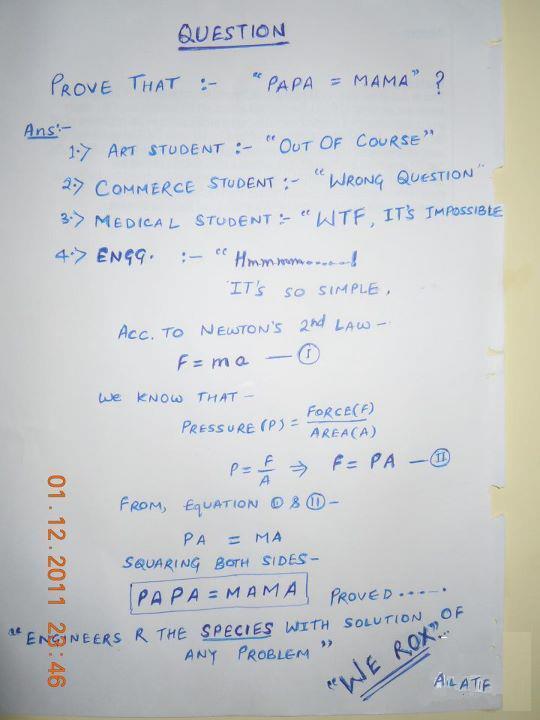 QUESTION
PROVE THAT :- "PAPA = MAMA" ?
Ans:-
1:-> ART STUDENT :- "OUT OF COURSE"
2:-> COMMERCE STUDENT :- "WRONG QUESTION"
3:-> MEDICAL STUDENT :- "WTF, IT'S IMPOSSIBLE
4:-> ENGG. :- "Hmmmmm......!
IT'S SO SIMPLE.
ACC. TO NEWTON'S 2nd LAW -
F = ma — Ⓘ
WE KNOW THAT -
PRESSURE (P) = FORCE(F) / AREA(A)
P = F/A ⇒ F = PA — Ⅱ
FROM, EQUATION Ⓘ & Ⅱ -
PA = MA
SQUARING BOTH SIDES -
PAPA = MAMA PROVED .....
"ENGINEERS R THE SPECIES WITH SOLUTION OF
ANY PROBLEM"
"WE ROX"
A.LATIF
01.12.2011 23:46